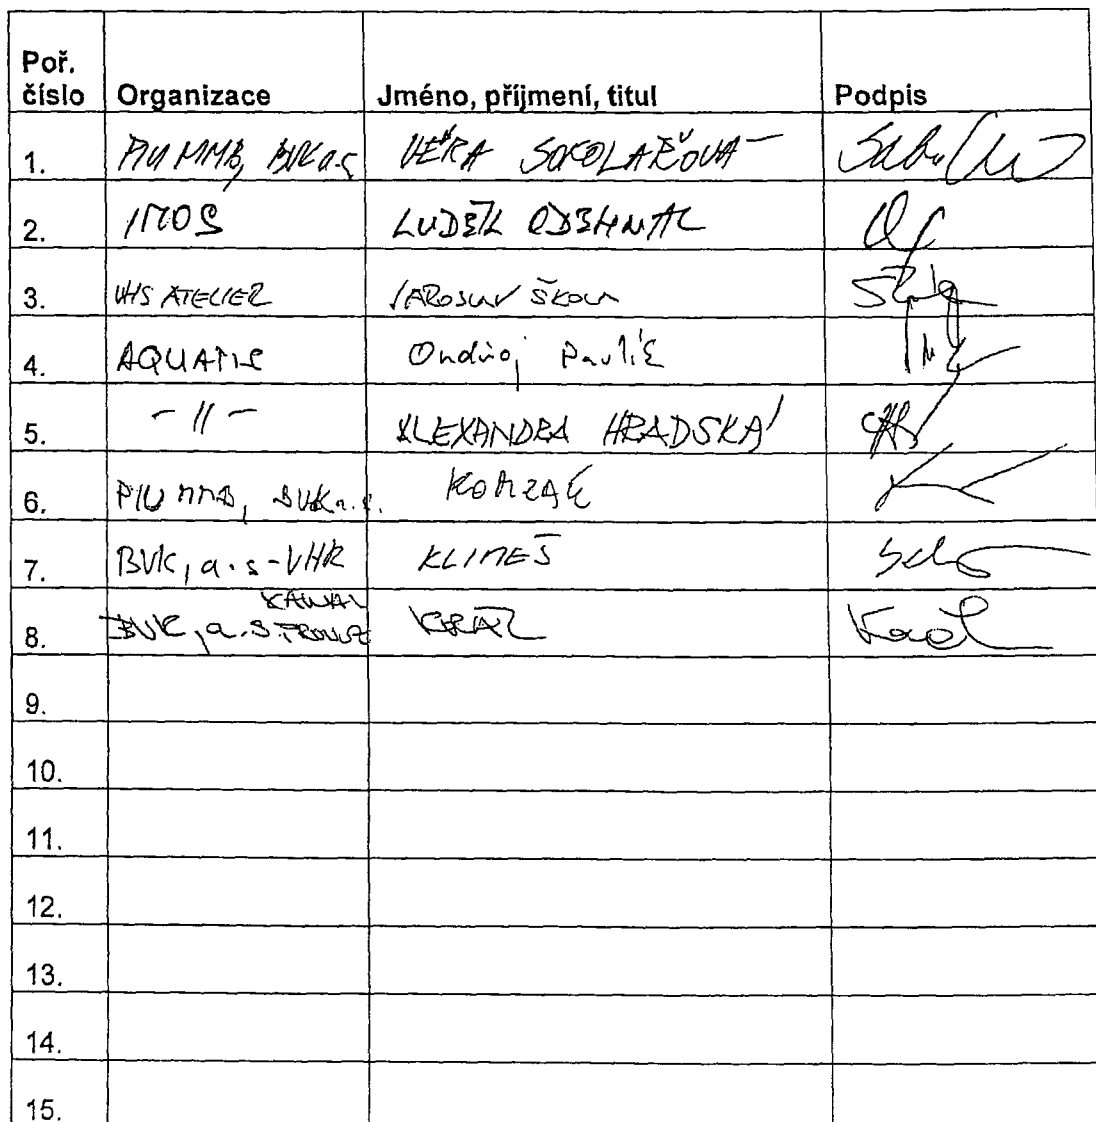 Poř. číslo Organizace Jméno, příjmení, titul Podpis
1. PIU MMB, BVK a.s. VĚRA SOKOLÁŘOVÁ
2. IMOS LUDĚK ODEHNAL
3. VHS ATELIER JAROSLAV ŠKOLA
4. AQUATIS Ondřej Pavlík
5. -//- ALEXANDRA HRADSKÁ
6. PIU MMB, BVK a.s.
7. BVK, a.s-VHR KLIMEŠ
8. BVK, a.s. KRÁL
9.
10.
11.
12.
13.
14.
15.